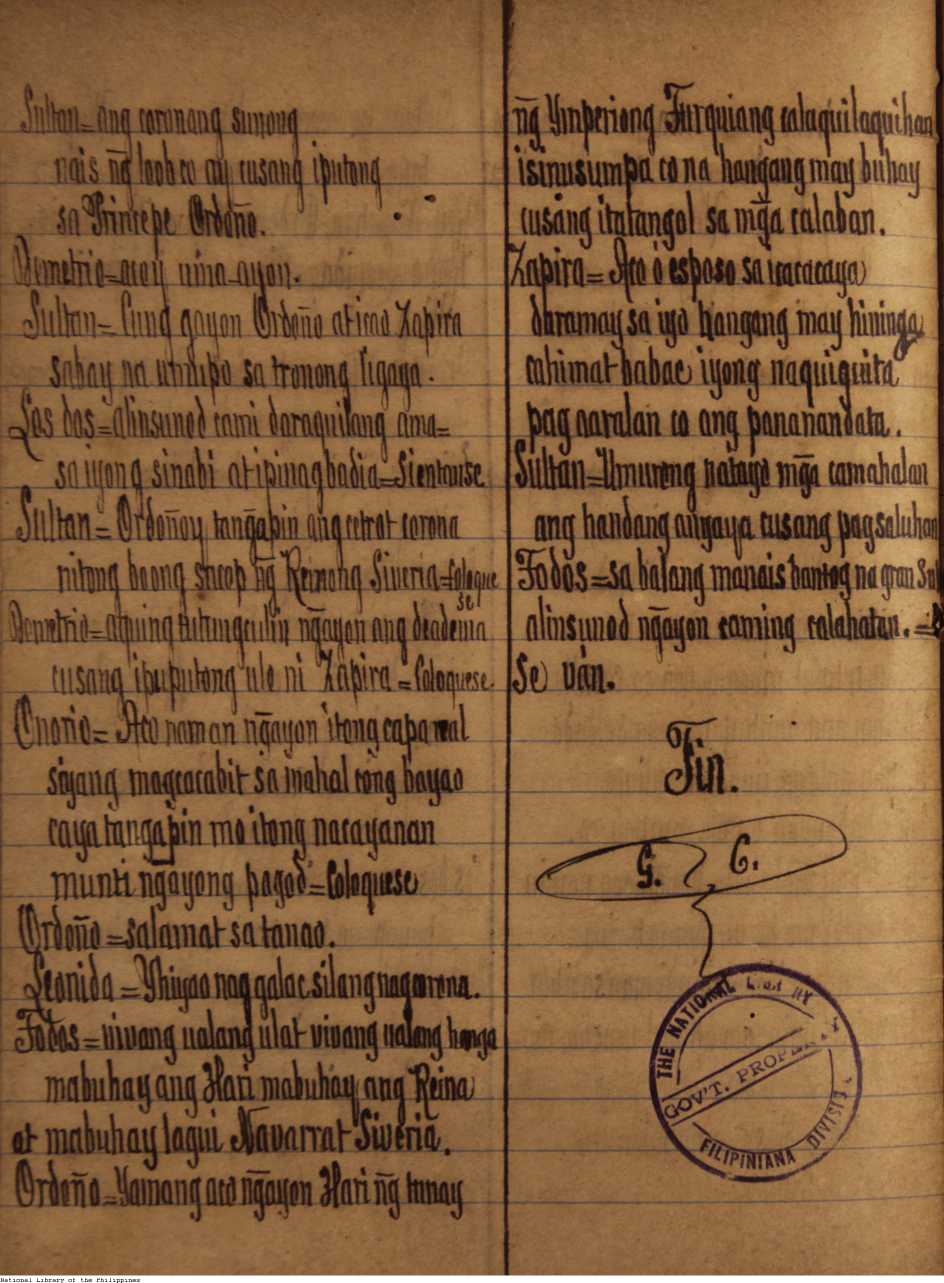 Sultan=ang coronang sunong
nais ng̃ loob co ay cusang iputong
sa Principe Ordoño.
Demetrio=acoy uma-ayon.
Sultan=Cung gayon Ordoño at icao Zapira
sabay na umupo sa tronong ligaya.
Los dos=alinsunod cami daraquilang ama=
sa iyong sinabi at ipinagbadia=Sientanse
Sultan=Ordoñoy tang̃apin ang cetrot corona
nitong boong sacop ng̃ Reinong Siveria=Coloque
se
Demetrio=at ng̃ayon ang deadema
cusang ipuputong ulo ni Zapira=Coloquese.
Onorio=Aco naman ng̃ayon itong capa real
siyang magcacabit sa mahal cong bayao
caya tangapin mo itong nacayanan
munti ngayong pagod=Coloquese
Ordoño=salamat sa tanao.
Leonida=Yhiyao nag galac silang
Todos=vivang ualang ulat vivang ualang hanga
mabuhay ang Hari mabuhay ang Reina
at mabuhay lagui Navarrat Siveria.
Ordoño=Yamang aco ng̃ayon Hari ng̃ tunay
ng̃ Ymperiong Turquiang calaquilaquihan
isinusumpa co na hangang may buhay
cusang itatangol sa mg̃a calaban.
Zapira=Aco ó esposo sa macacaya
daramay sa iyo hangang may hininga
cahimat babae iyong naquiquita
pag aaralan co ang pananandata.
Sultan=Umurong natayo mg̃a camahalan
ang handang anyaya cusang pagsaluhan
Todos=sa balang manais bantog na gran Sul
alinsunod ng̃ayon caming calahatan.=
Se ván.
Fin.
G. C.
THE NATIONAL LIBRARY
GOV'T. PROPERTY
FILIPINIANA DIVISION
National Library of the Philippines